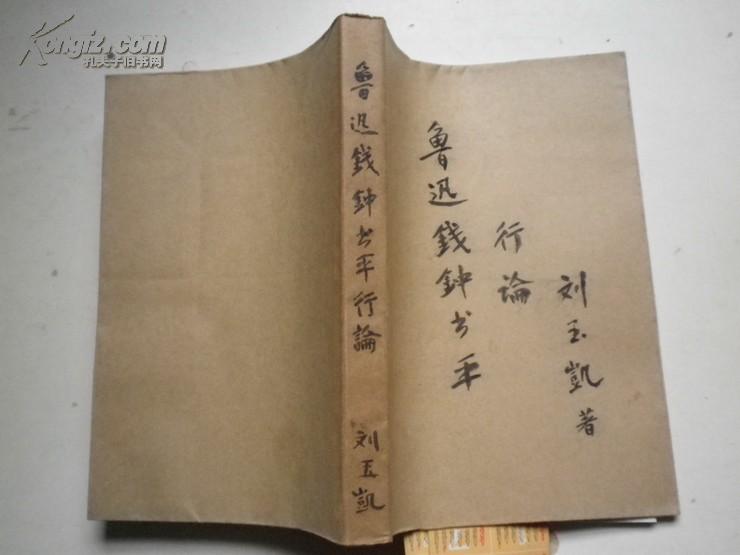 Kongfz.com
孔夫子旧书网
鲁迅錢鈡书平行論
刘玉凱
鲁迅錢鈡书平
行論
刘玉凱著